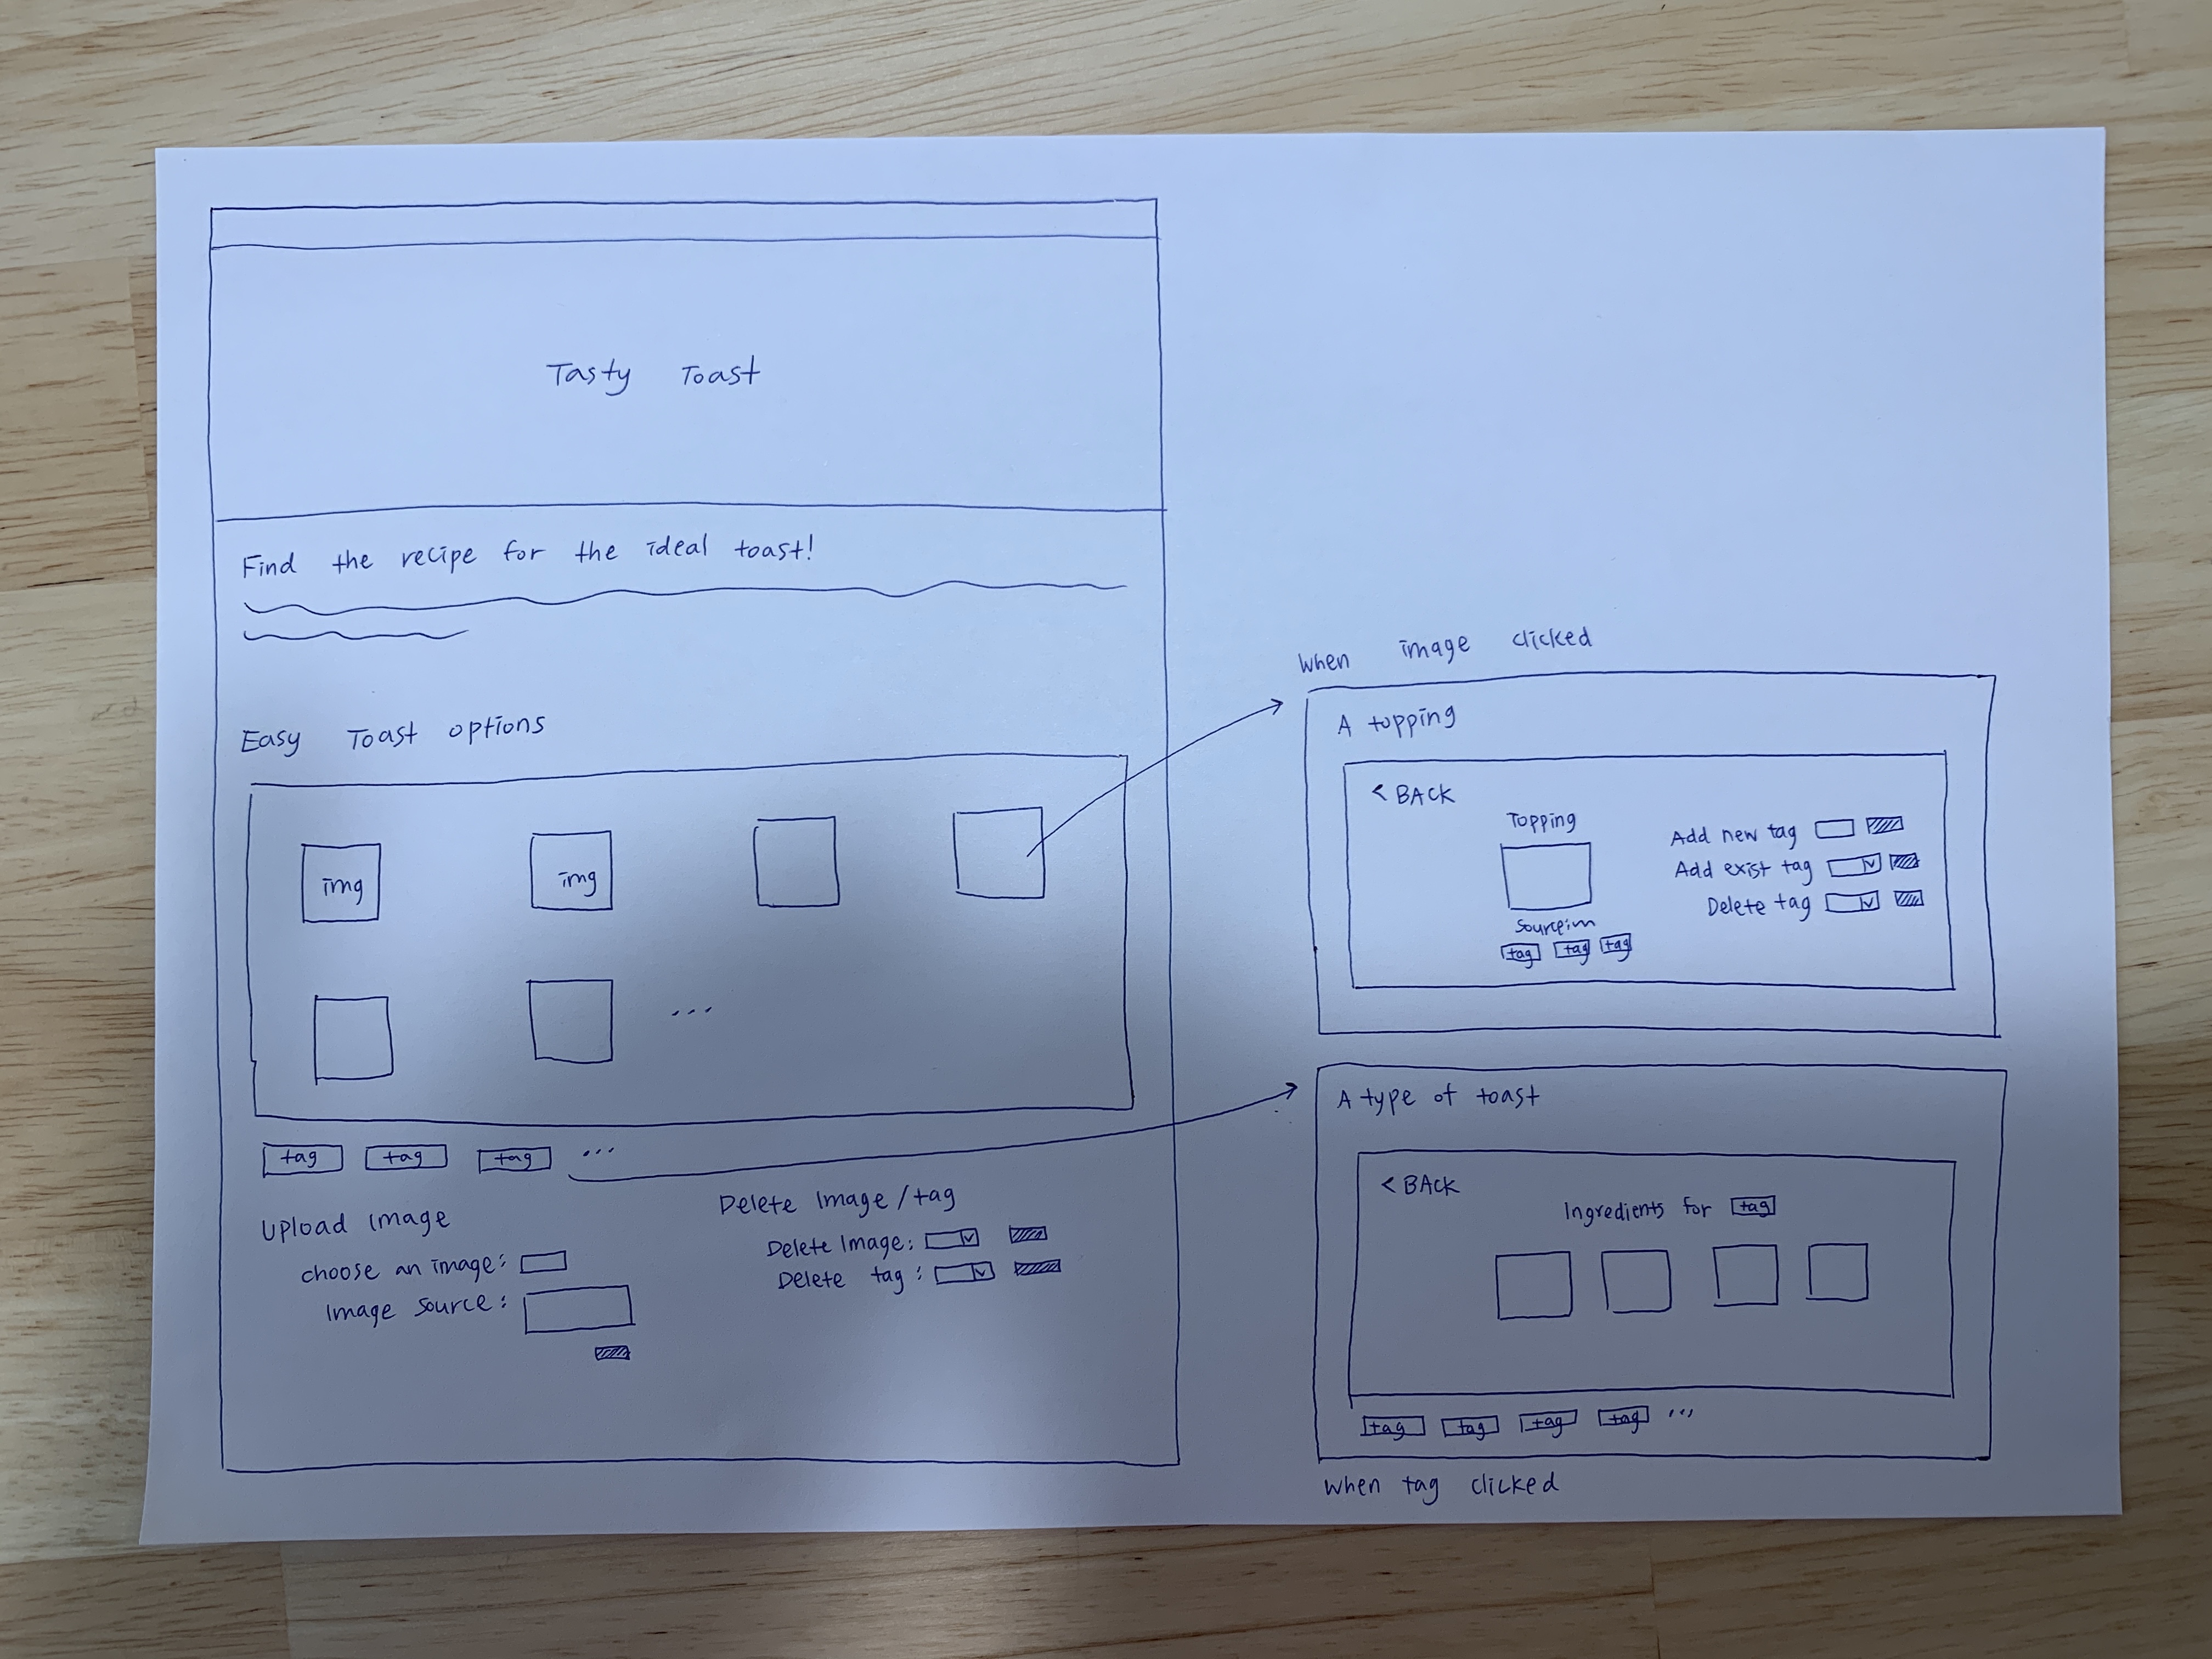 Tasty Toast
Find the recipe for the ideal toast!
Easy Toast options
img
img
...
tag tag tag ...
Upload Image
choose an image:
Image source:
Delete Image/tag
Delete Image:
Delete tag:
When image clicked
A topping
< BACK
Topping
tag tag tag
Add new tag
Add exist tag
Delete tag
A type of toast
< BACK
Ingredients for tag
tag tag tag tag ...
When tag clicked